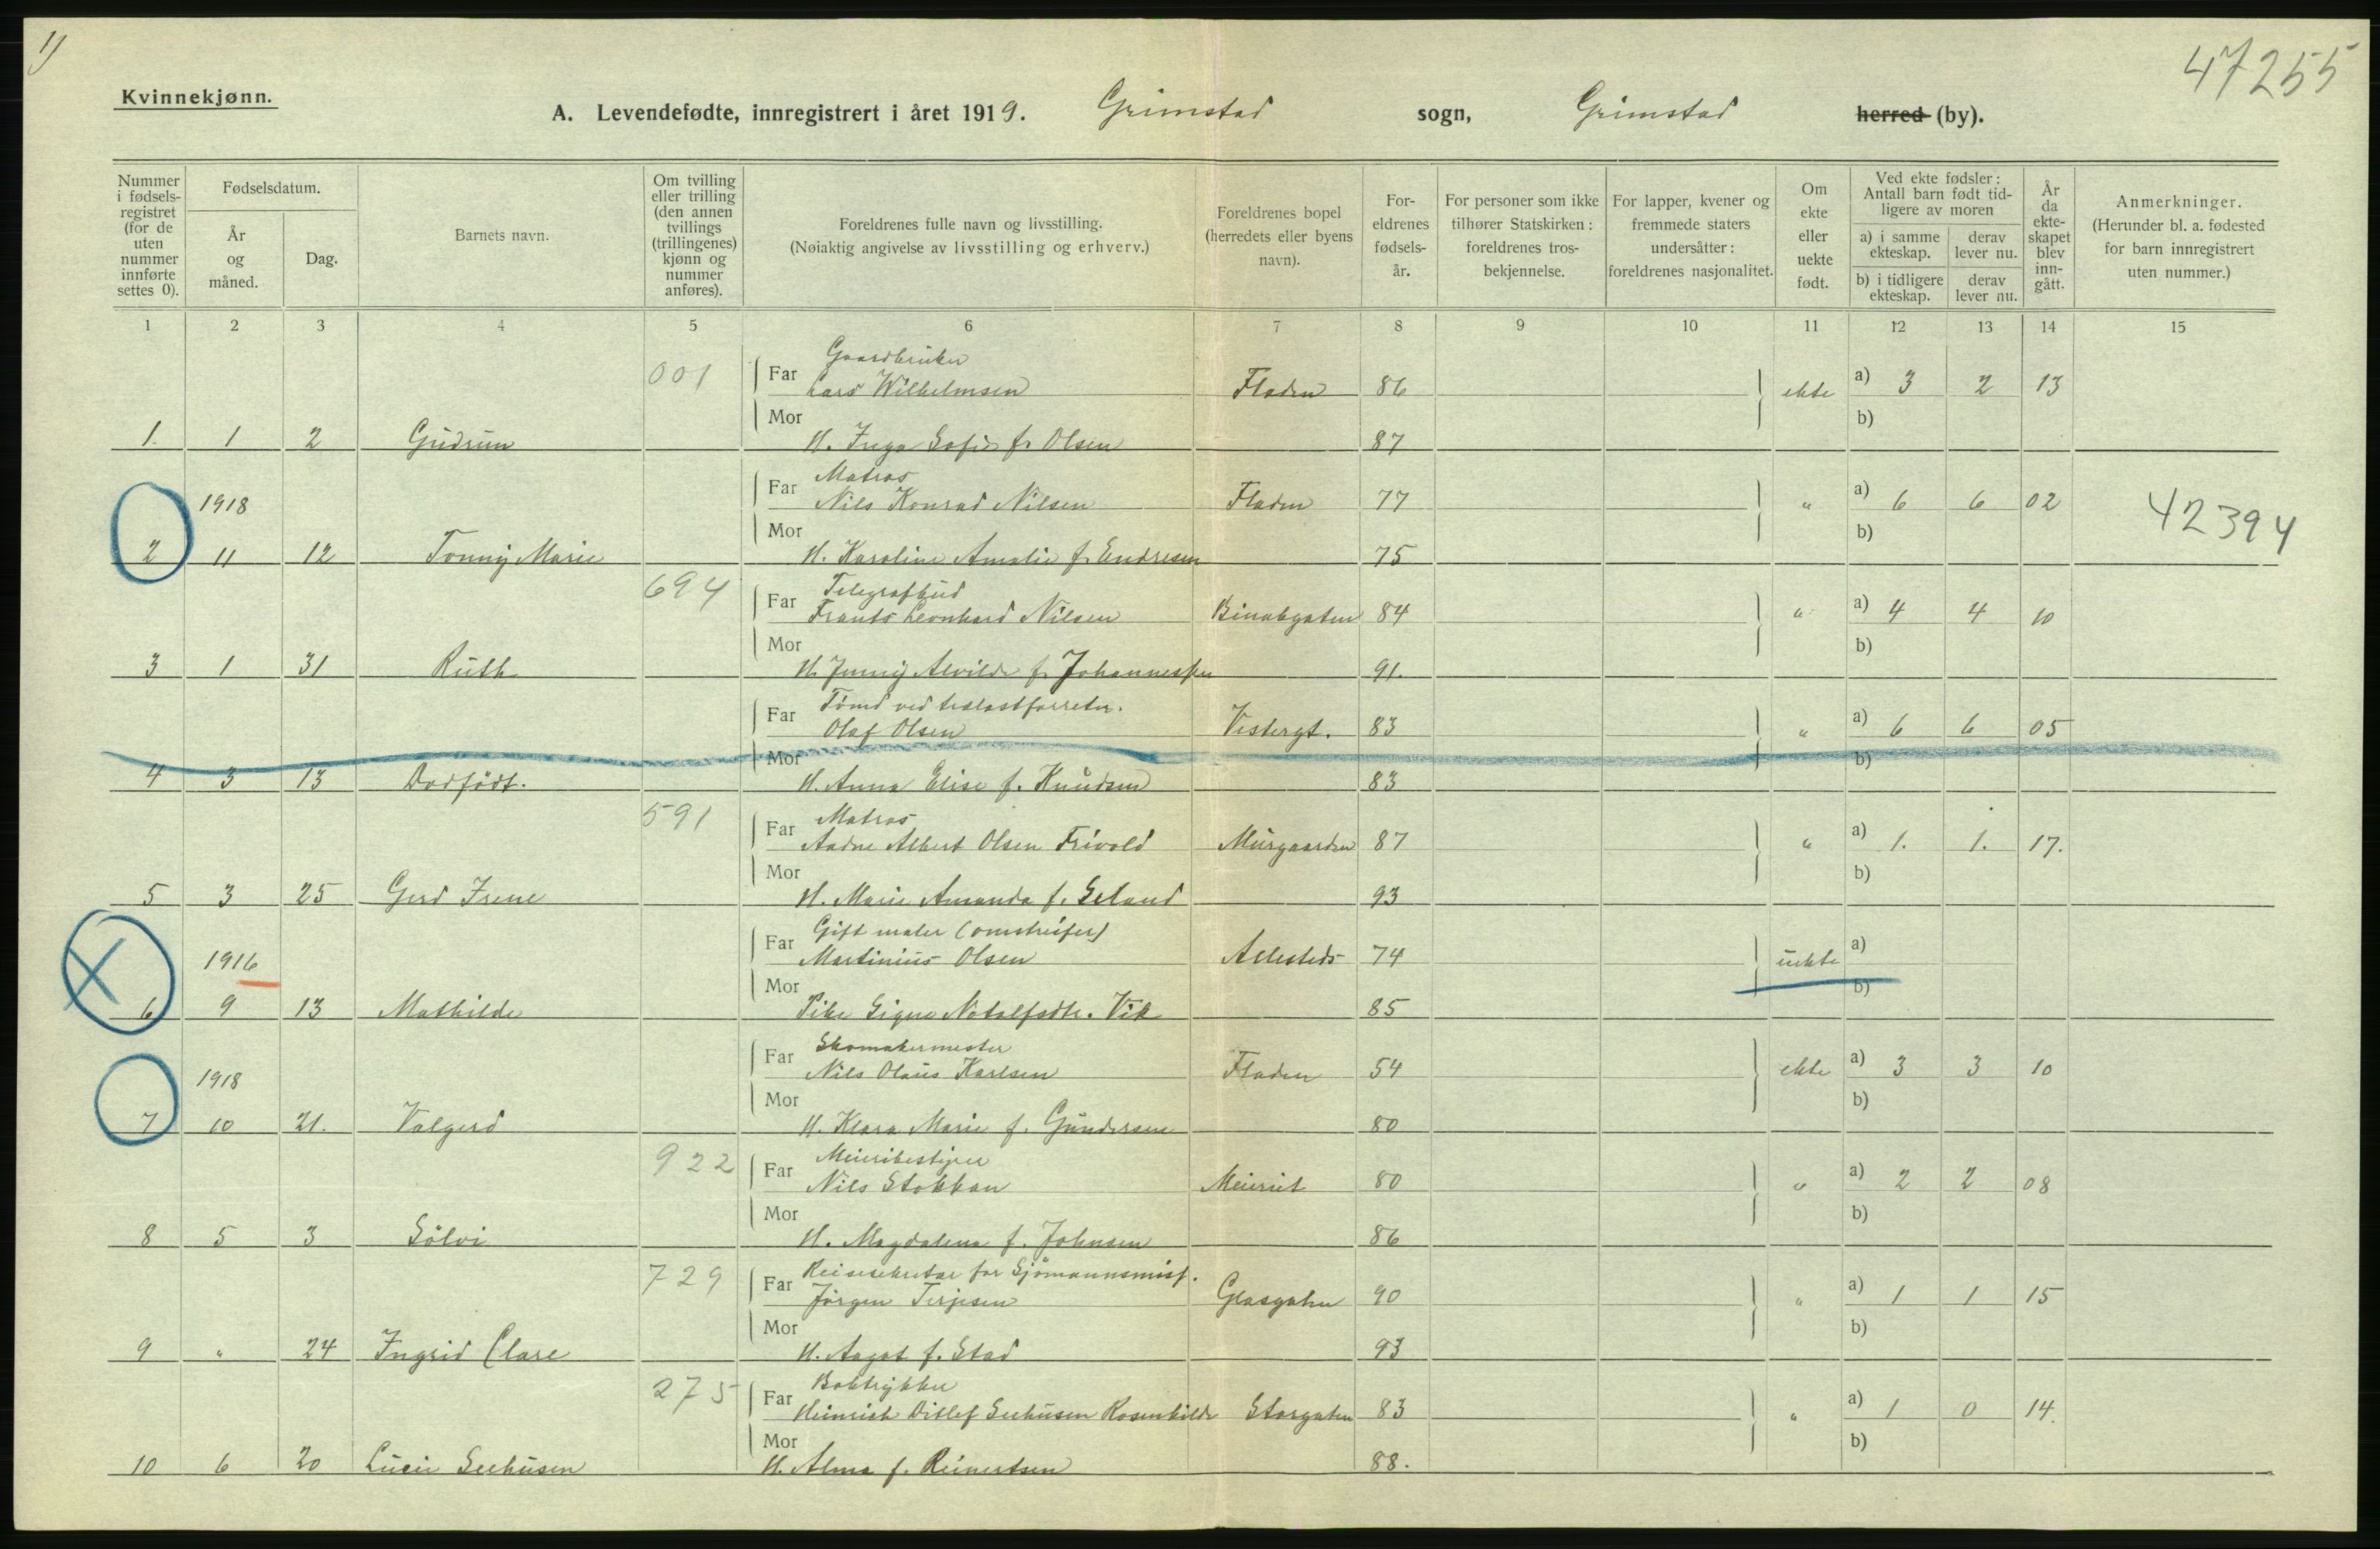 1)
47255
Kvinnekjønn.
A. Levendefødte, innregistrert i året 1919. Grimstad sogn, Grimstad herred (by).
Nummer i fødsels-registret (for de uten nummer innførte settes 0).
Fødselsdatum.
År og måned.
Dag.
Barnets navn.
Om tvilling eller trilling (den annen tvillings (trillingenes) kjønn og nummer anføres).
Foreldrenes fulle navn og livsstilling.
(Nøiaktig angivelse av livsstilling og erhverv.)
Foreldrenes bopel (herredets eller byens navn).
For-eldrenes fødsels-år.
For personer som ikke tilhører Statskirken: foreldrenes tros-bekjennelse.
For lapper, kvener og fremmede staters undersåtter: foreldrenes nasjonalitet.
Om ekte eller uekte født.
Ved ekte fødsler: Antall barn født tid-ligere av moren
a) i samme ekteskap.
derav lever nu.
b) i tidligere ekteskap.
derav lever nu.
År da ekte-skapet blev inn-gått.
Anmerkninger.
(Herunder bl. a. fødested for barn innregistrert uten nummer.)
1 2 3 4 5 6 7 8 9 10 11 12 13 14 15
001 Gaardbruker
Far Lars Wilhelmsen Fladen 86 ekte a) 3 2 13
Mor b)
1. 1 2 Gudrun H. Inga Sofie f. Olsen 87
Matros
1918 Far Nils Konrad Nilsen Fladen 77 " a) 6 6 02 42394
Mor b)
2 11 12 Tonny Marie H. Karoline Amalie f. Endresen 75
694 Telegrafbud
Far Frants Leonhard Nilsen Binabgaten 84 " a) 4 4 10
Mor b)
3 1 31 Ruth H. Jenny Alvilde f. Johannessen 91.
Far Olaf Olsen Vestergt. 83 " a) 6 6 05
Mor b)
4 3 13 Dødfødt. H. Anna Elise f. Knudsen 83
591 Matros
Far Aadne Albert Olsen Frivold Murgaarden 87 " a) 1. 1. 17.
Mor b)
5 3 25 Gerd Irene H. Marie Amanda f. Seland 93
Gift maler (omstreifer)
1916 Far Martinius Olsen Allesteds 74 uekte a)
Mor b)
6 9 13 Mathilde Pike Signe Notolfsdtr. Vik 85
Skomakermester
1918 Far Nils Olaus Karlsen Fladen 54 ekte a) 3 3 10
Mor b)
7 10 21. Valgerd H. Klara Marie f. Gundersen 80
922 Meieribestyrer
Far Nils Stokkan Meieriet 80 " a) 2 2 08
Mor b)
8 5 3 Sölvi H. Magdalena f. Johnsen 86
729 Reisesekretær for Sjömannsmisj.
Far Jörgen Terjesen Glasgaten 90 " a) 1 1 15
Mor b)
9 " 24 Ingrid Clare H. Aagot f. Stad 93
275 Boktrykker
Far Heinrich Ditlef Seehusen Rosenkilde Storgaten 83 " a) 1 0 14.
Mor b)
10 6 20 Lucie Seehusen H. Alma f. Reinertsen 88.